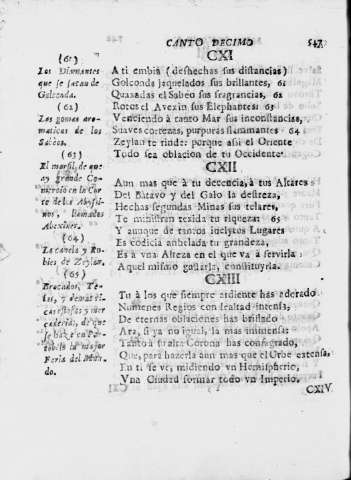 CANTO DECIMO 547
CXI
A ti embia (deshechas sus distancias)
Golconda jaquelados sus brillantes, 61
Quaxadas el Sabéo sus fragrancias, 62
Rotos el Avexin sus Elephantes: 63
Venciendo à tanto Mar sus inconstancias,
Suaves cortezas, purpuras flammantes 64
Zeylan te rinde: porque assi el Oriente
Todo sea oblacion de tu Occidente.
CXII
Aun mas que à tu decencia, à tus Altares
Del Batavo y del Galo la destreza,
Hechas segundas Minas sus telares,
Te ministran texida tu riqueza: 65
Y aunque de tantos inclytos Lugares
Es codicia anhelada tu grandeza,
Es à vna Alteza en el que va à servirla
Aquel mismo gastarla, constituyrla.
CXIII
Tu à los que siempre ardiente has adorado
Numenes Regios con lealtad intensa,
De eternas oblaciones has brillado
Ara, si ya no igual, la mas inmensa:
Tanto à su alta Corona has consagrado,
Que, para hazerla aun mas que el Orbe extensa,
En ti se ve, midiendo vn Hemispherio,
Vna Ciudad formar todo vn Imperio.
CXIV
(61)
Los Diamantes
que se sacan de
Golconda.
(62)
Las gomas aro-
maticas de los
Sabéos.
(63)
El marfil, de que
ay grande Co-
mercio en la Cor
te de los Abyssi-
nos, llamados
Abexines.
(64)
La canela y Ru-
bies de Zeylan.
(65)
Brocados, Te-
las, y demas ri-
cas estofas y mer
caderias, de que
se haze en Por-
tobelo la mayor
Feria del Mun-
do.